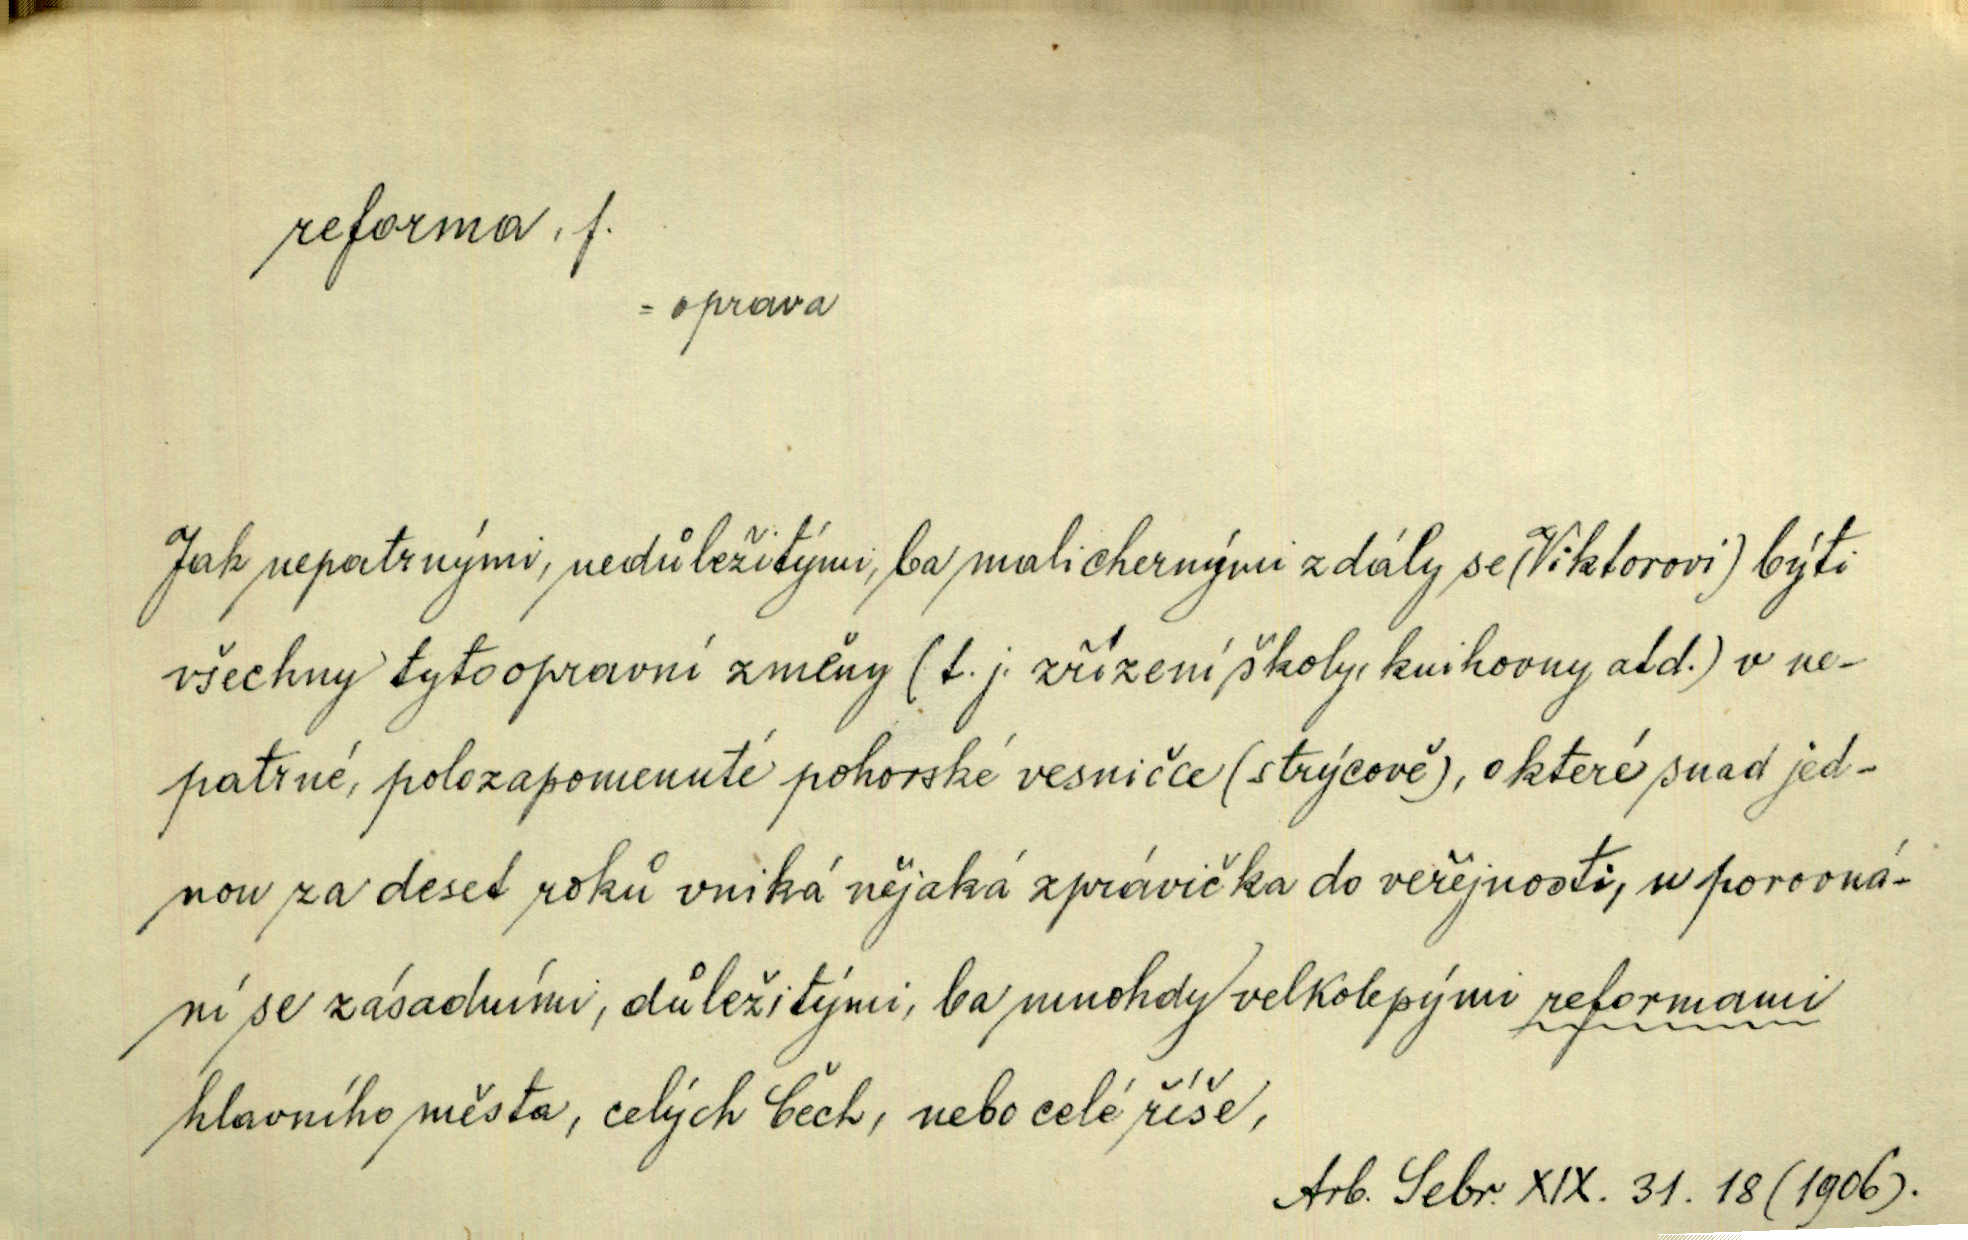 reforma, f.
= oprava
Jak nepatrnými, nedůležitými, ba malichernými zdály se (Viktorovi) býti
všechny tyto opravní změny (t. j. zřízení školy, knihovny atd.) v ne-
patrné, polozapomenuté pohorské vesničce (strýcově), o které snad jed-
nou za deset roků vniká nějaká zprávička do veřejnosti, u porovná-
ní se zásadními, důležitými, ba mnohdy velkolepými reformami
hlavního města, celých Čech, nebo celé říše,
Arb. Sebr. XIX. 31. 18 (1906).